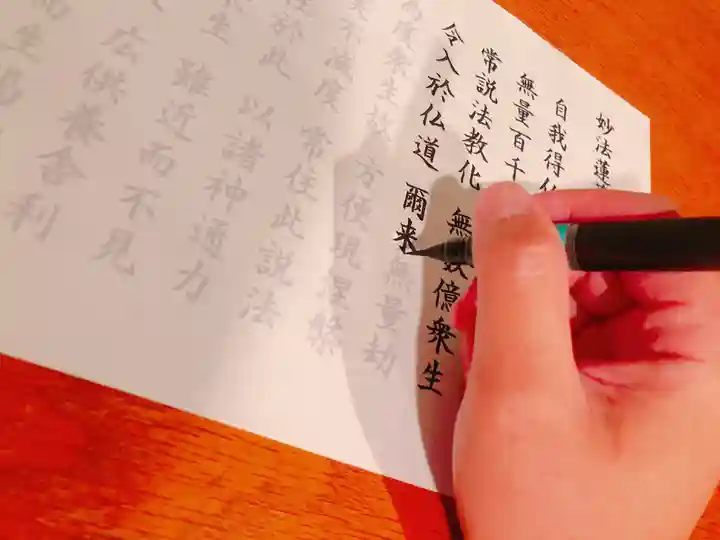 妙法蓮
自我得
無量百千
常説法教化 無数億衆生
令入於仏道 爾来無量劫
為度衆生故 方便現涅槃
実不滅度 常住此説法
住於此 以諸神通力
生 雖近而不見
広供養舎利
生